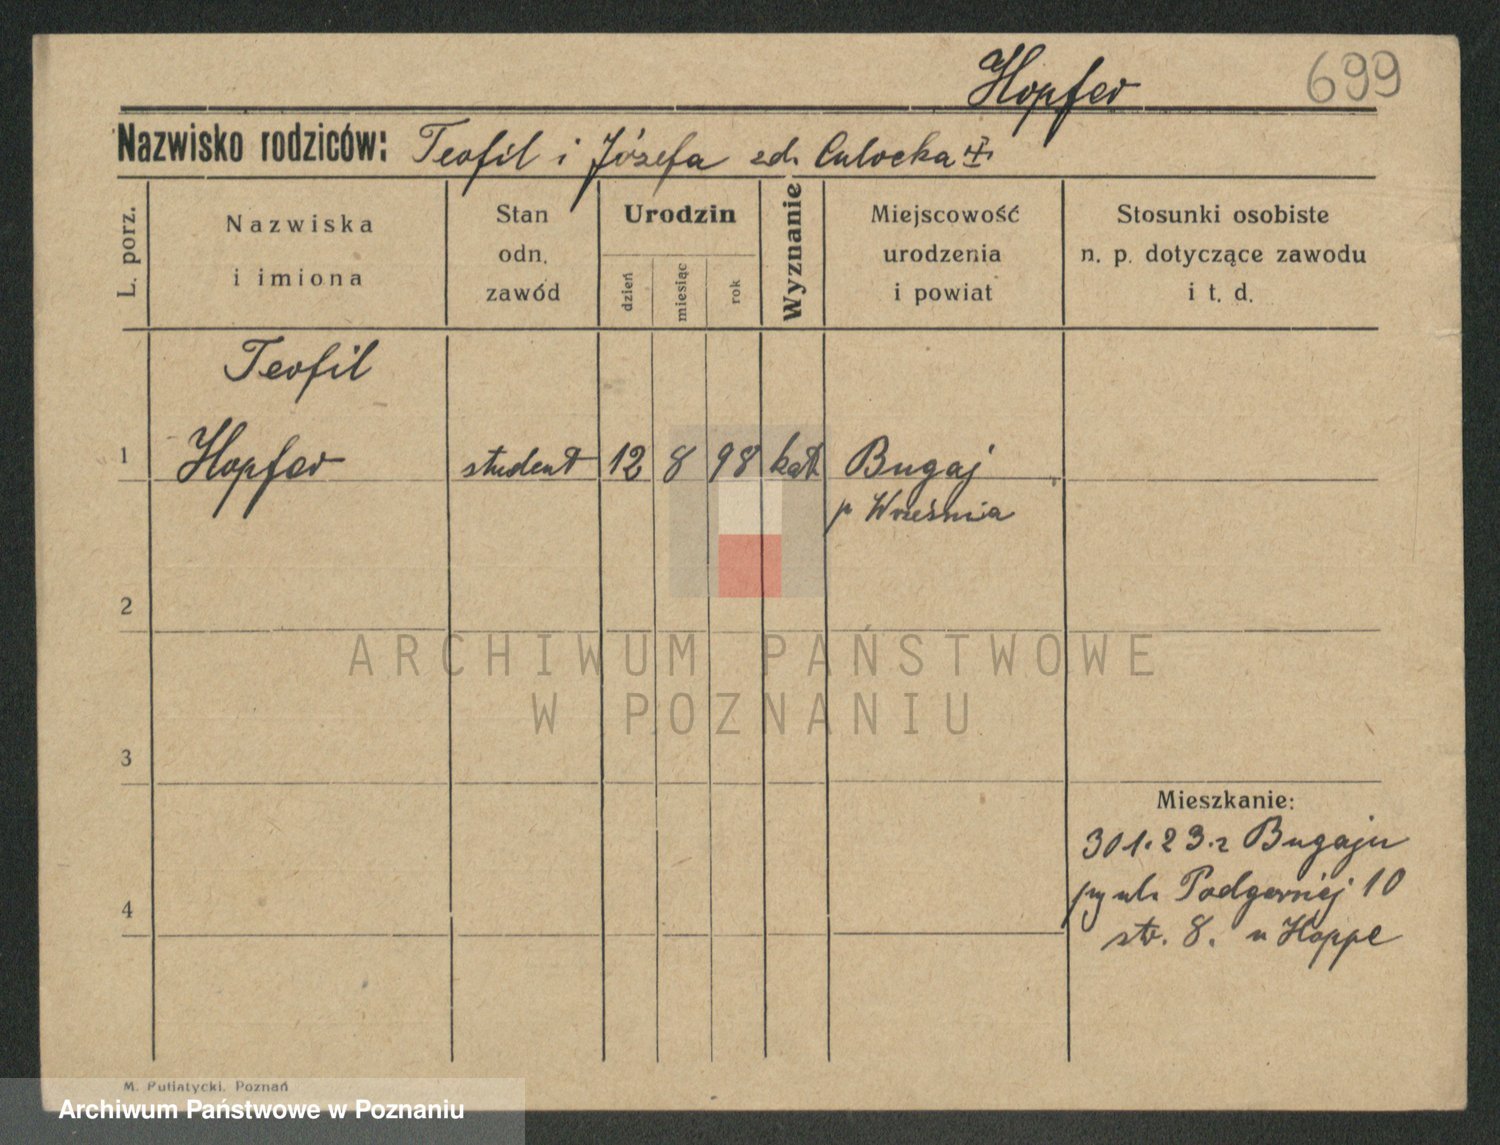 Hopfer 699
Nazwisko rodziców: Teofil i Józefa zd. Culocka
L. porz.
Nazwiska
i imiona
Stan
odn.
zawód
Urodzin
dzień
miesiąc
rok
Wyznanie
Miejscowość
urodzenia
i powiat
Stosunki osobiste
n. p. dotyczące zawodu
i t. d.
Teofil
1 Hopfer student 12 8 98 kat. Bugaj
p Września
2
3
4
Mieszkanie:
30 1. 23. z Bugaju
ul. Podgórniej 10
str. 8. u Hoppe
M. Putiatycki, Poznań
ARCHIWUM PAŃSTWOWE
W POZNANIU
Archiwum Państwowe w Poznaniu